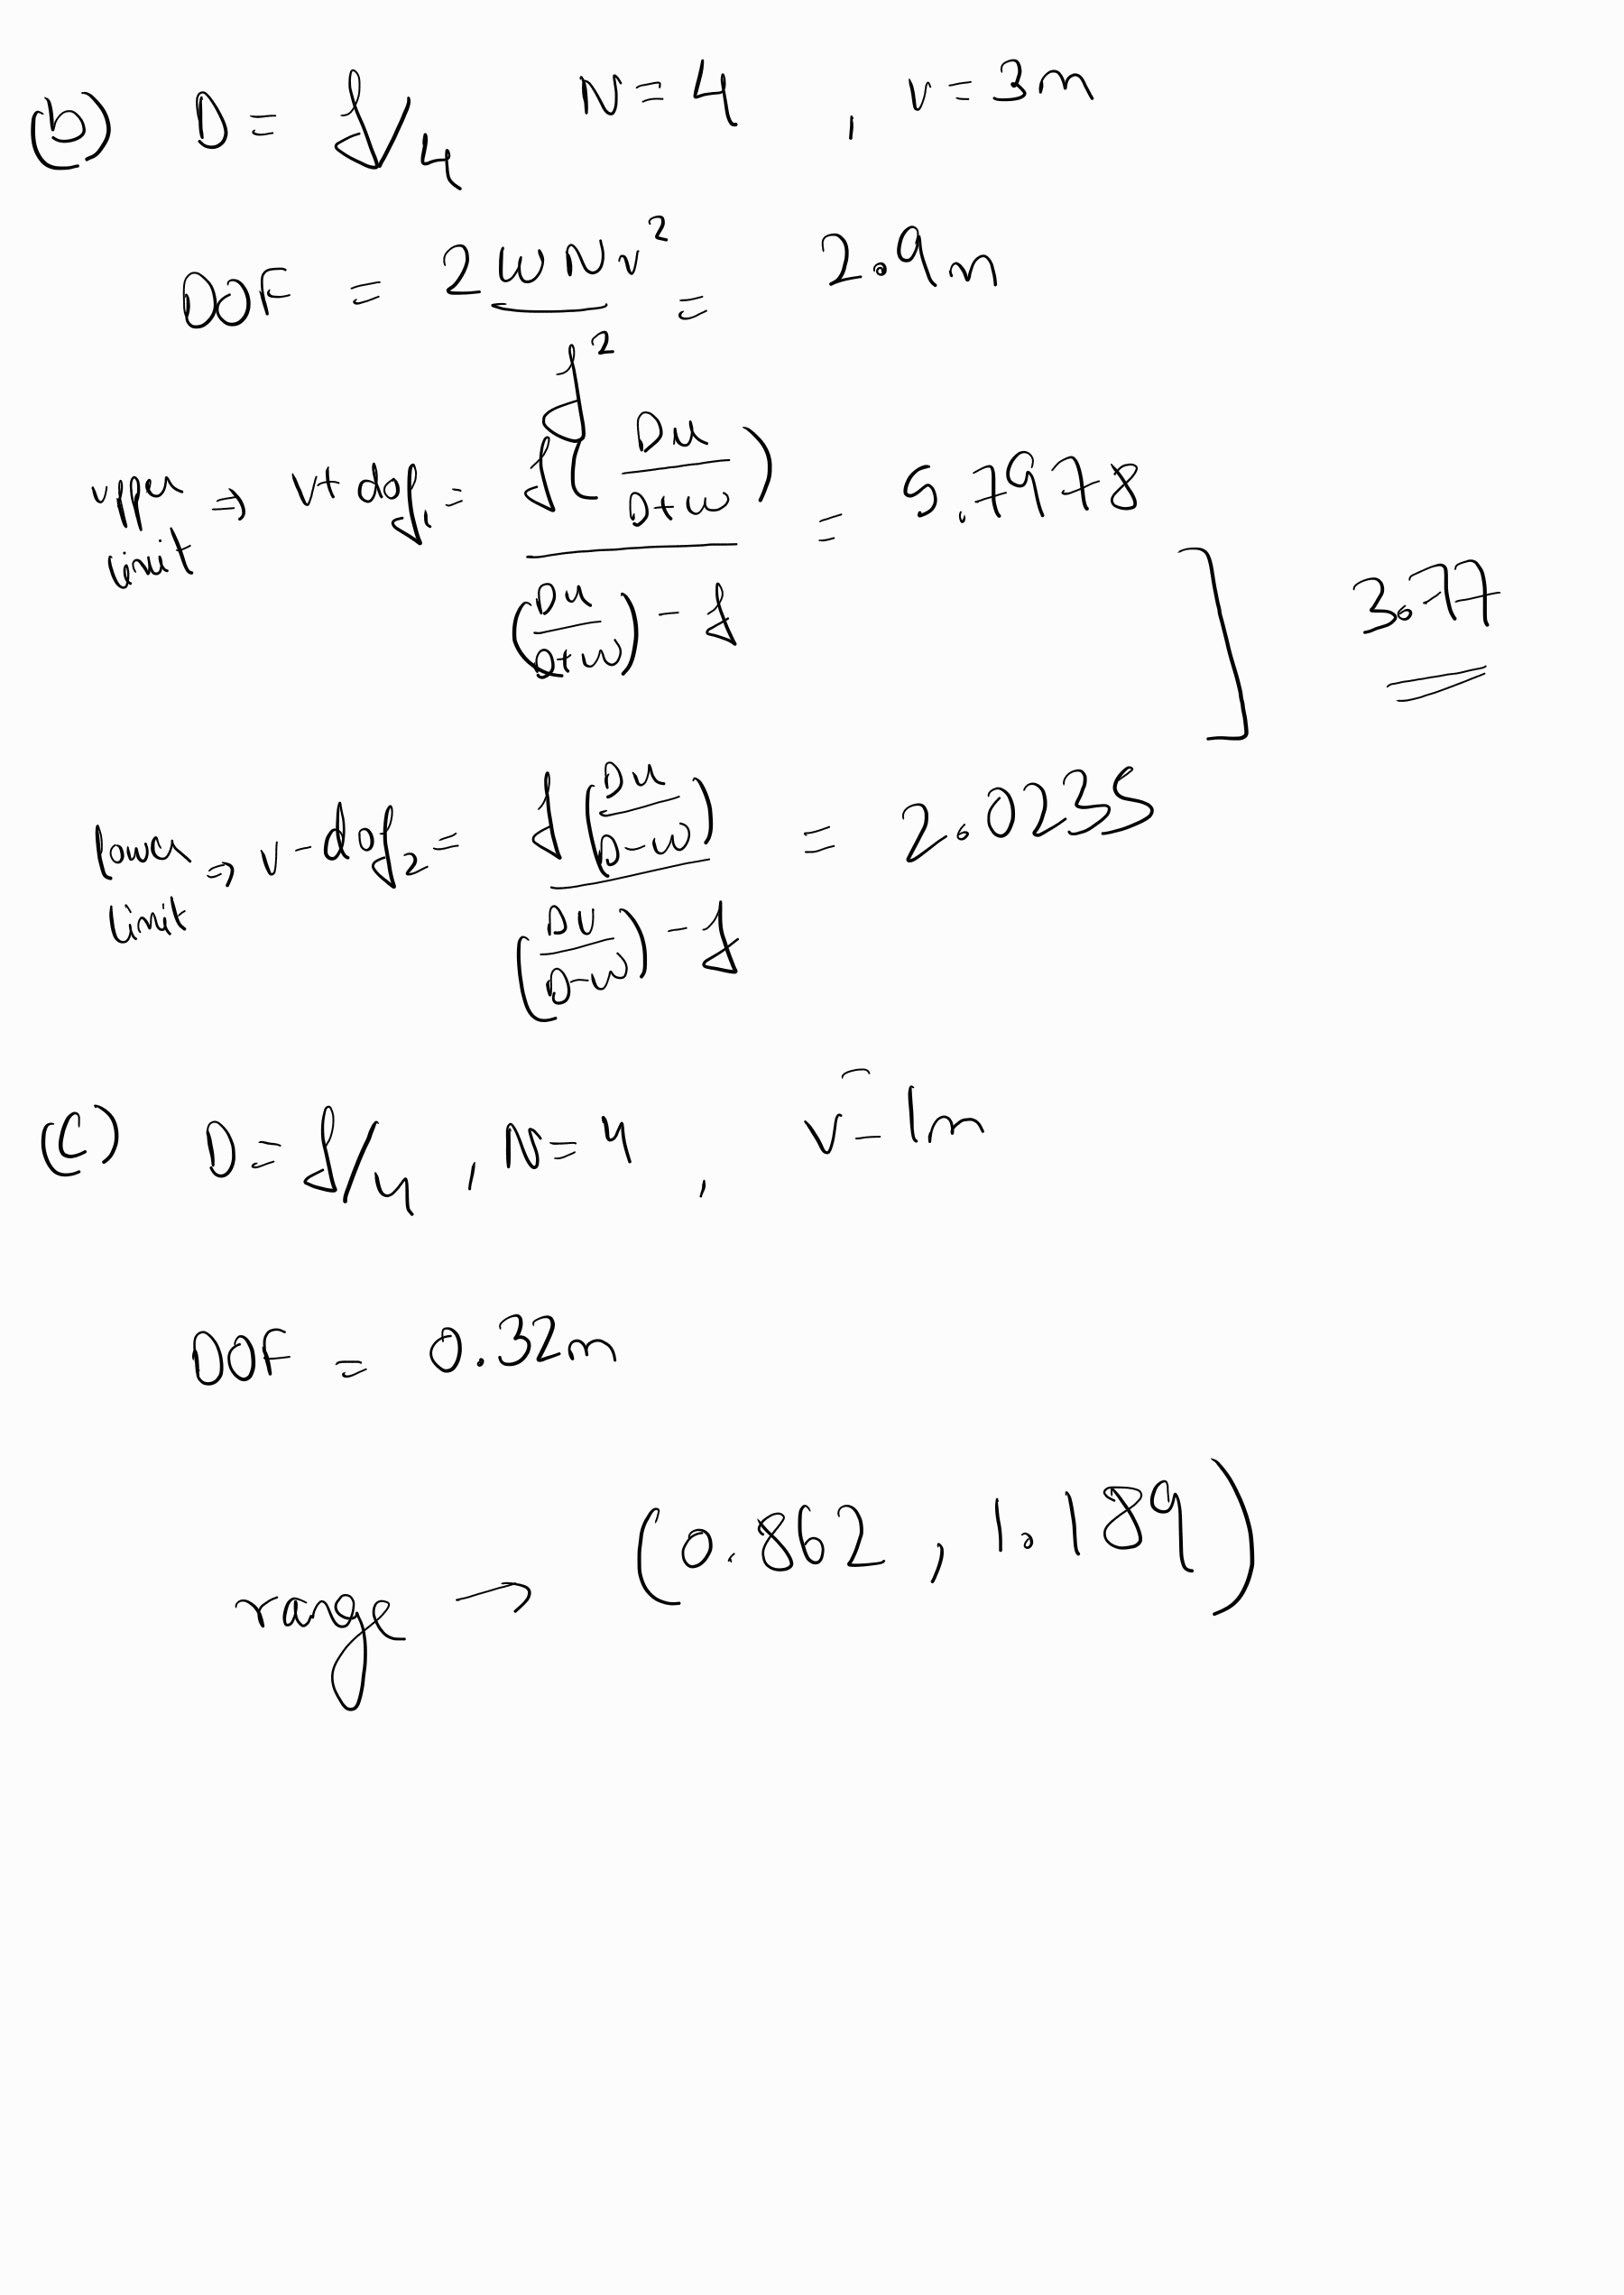 (b) D = f/4 N = 4 , v = 3m
DOF = 2ωNv²/f² = 2.9m
upper limit ⇒ v + dof₁ = f(Du/(D+ω)) / ((Du/(D+ω)) - f) = 5.7978
] 3.77
lower limit ⇒ v - dof₂ = f(Du/(D-ω)) / ((Du/(D-ω)) - f) = 2.0235
(c) D = f/4 , N = 4 , v = 1m
DOF = 0.32m
range → (0.862 , 1.189)